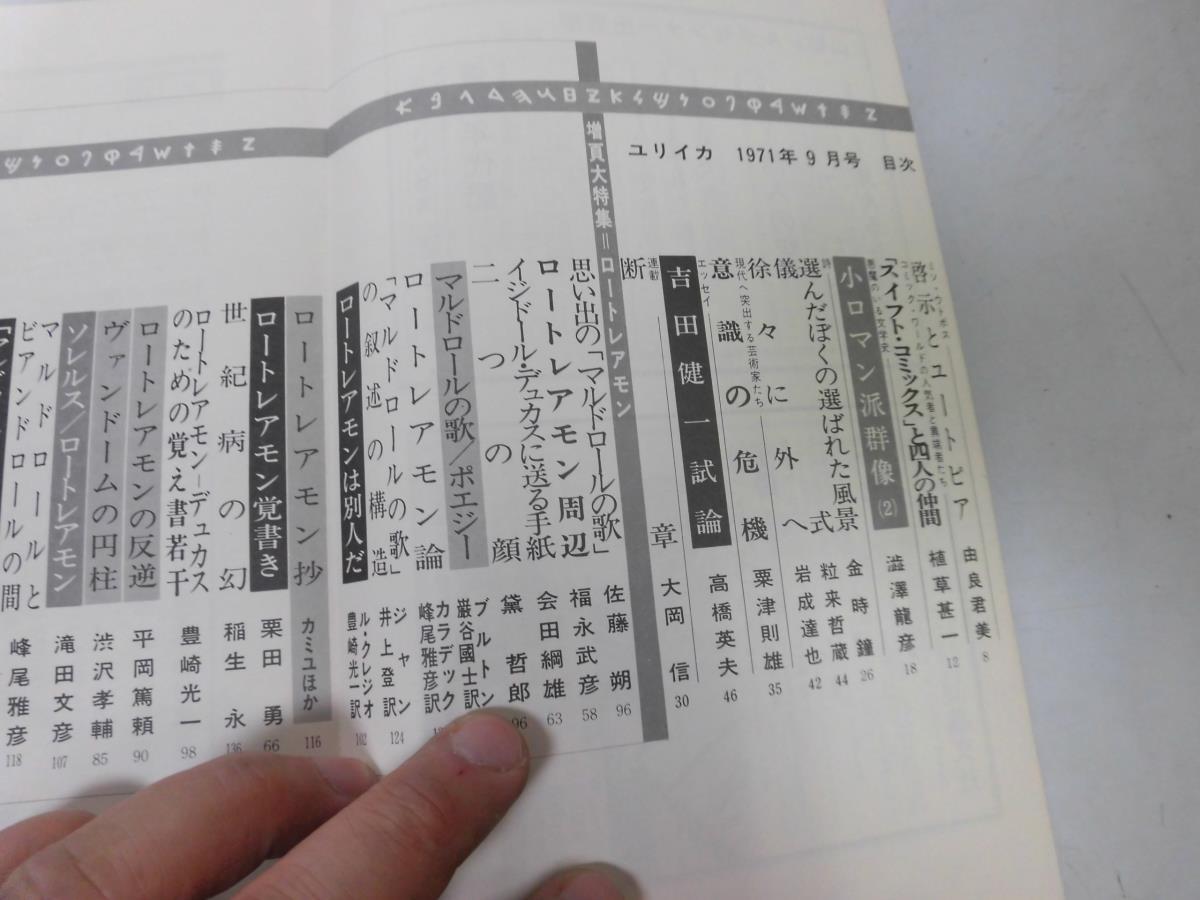 ユリイカ 1971年9月号 目次
ミソ・ウトポス
啓示とユートピア 由良君美 8
コミック・ワールドの人気者と異端者たち
「スイフト・コミックス」と四人の仲間 植草甚一 12
悪魔のいる文学史
小ロマン派群像(2) 澁澤龍彦 18
詩
選んだぼくの選ばれた風景 金時鐘 26
儀式 粒来哲蔵 44
徐々に外へ 岩成達也 42
現代へ突出する芸術家たち
意識の危機 粟津則雄 35
エッセイ
吉田健一試論 高橋英夫 46
連載
断章 大岡信 30
増頁大特集=ロートレアモン
思い出の「マルドロールの歌」 佐藤朔 96
ロートレアモン周辺 福永武彦 58
イジドール・デュカスに送る手紙 会田綱雄 63
二つの顔 黛哲郎
マルドロールの歌/ポエジー ブルトン 巌谷國士訳
ロートレアモン論 カラデック 峰尾雅彦訳
「マルドロールの歌」の叙述の構造 ジャン 井上登訳 124
ロートレアモンは別人だ ル・クレジオ 豊崎光一訳 102
ロートレアモン抄 カミュほか 116
ロートレアモン覚書き 栗田勇 66
世紀病の幻 稲生永 136
ロートレアモン=デュカス
のための覚え書若干 豊崎光一 98
ロートレアモンの反逆 平岡篤頼 90
ヴァンドームの円柱 渋沢孝輔 85
ソレルス/ロートレアモン 滝田文彦 107
マルドロールと
ビアンドロールの間 峰尾雅彦 118